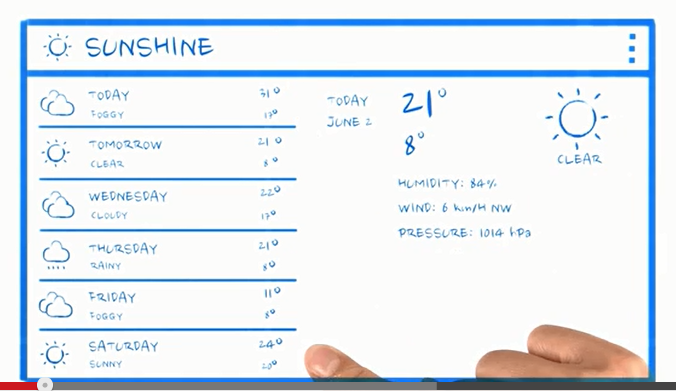 SUNSHINE
TODAY 31°
FOGGY 17°
TOMORROW 21°
CLEAR 8°
WEDNESDAY 22°
CLOUDY 17°
THURSDAY 21°
RAINY 8°
FRIDAY 11°
FOGGY 8°
SATURDAY 24°
SUNNY 20°
TODAY 21°
JUNE 2 8°
CLEAR
HUMIDITY: 84%
WIND: 6 km/H NW
PRESSURE: 1014 hPa